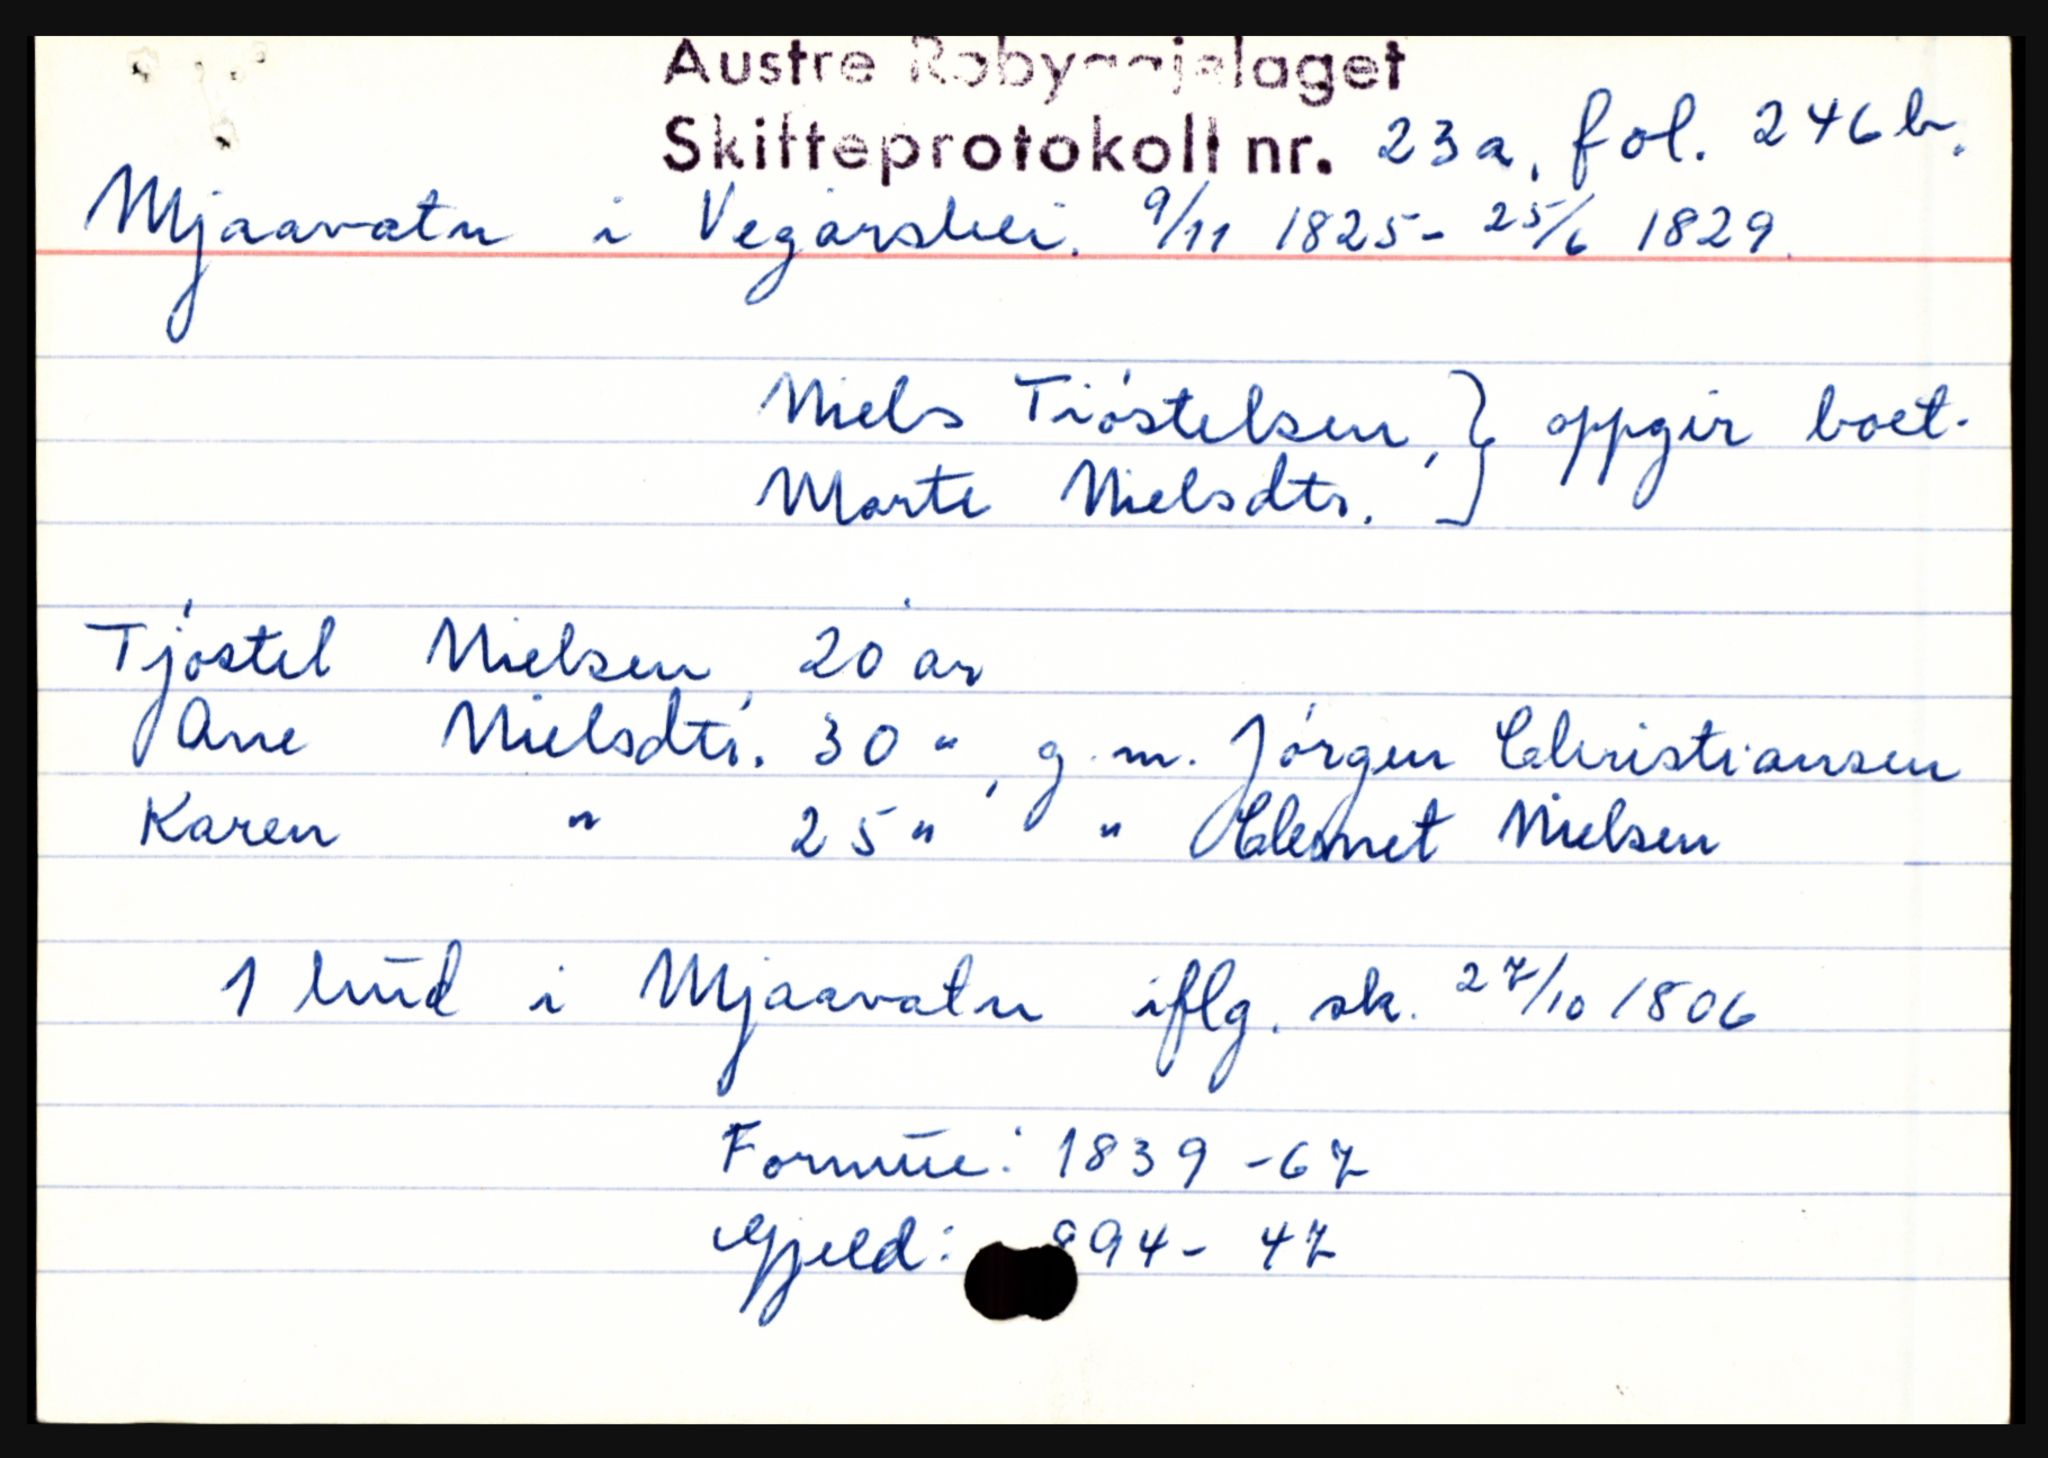 Austre Robyggjelaget
Skifteprotokoll nr. 23a, fol. 246b.
Mjaavatn i Vegårshei. 9/11 1825 - 25/6 1829.
Niels Tióstelsen, } oppgir boet.
Marte Nielsdtr.
Tjóstel Nielsen, 20 år
Ane Nielsdtr. 30 " , g.m. Jórgen Christiansen
Karen " 25 " " Clemet Nielsen
1 hud i Mjaavatn iflg. sk. 27/10 1806
Formue: 1839 - 67
Gjeld: 894 - 47